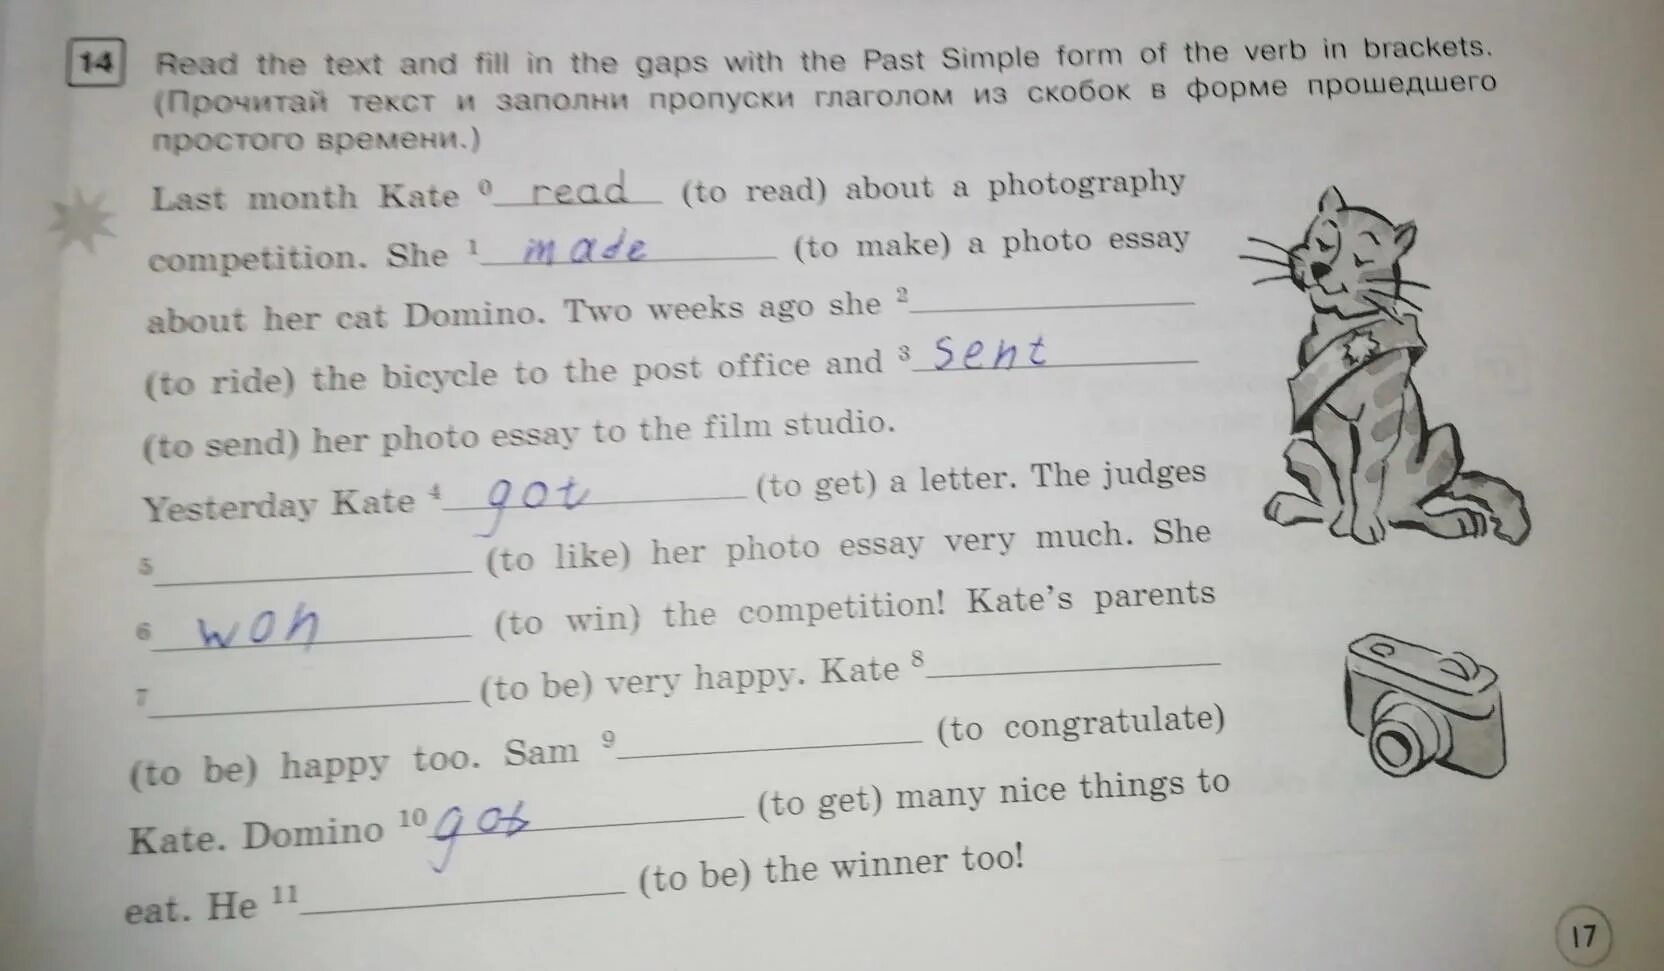 14 Read the text and fill in the gaps with the Past Simple form of the verb in brackets.
(Прочитай текст и заполни пропуски глаголом из скобок в форме прошедшего
простого времени.)
Last month Kate 0 read (to read) about a photography
competition. She 1 made (to make) a photo essay
about her cat Domino. Two weeks ago she 2
(to ride) the bicycle to the post office and 3 sent
(to send) her photo essay to the film studio.
Yesterday Kate 4 got (to get) a letter. The judges
5 (to like) her photo essay very much. She
6 won (to win) the competition! Kate's parents
7 (to be) very happy. Kate 8
(to be) happy too. Sam 9 (to congratulate)
Kate. Domino 10 got (to get) many nice things to
eat. He 11 (to be) the winner too!
17